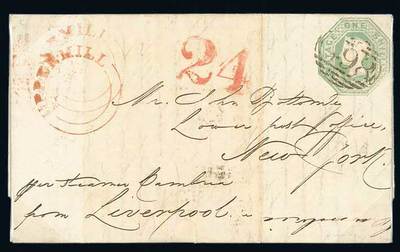 UPPERMILL
24
POSTAGE ONE SHILLING
Mr. John
Lower post office,
New York.
per steamer Cambria
from Liverpool